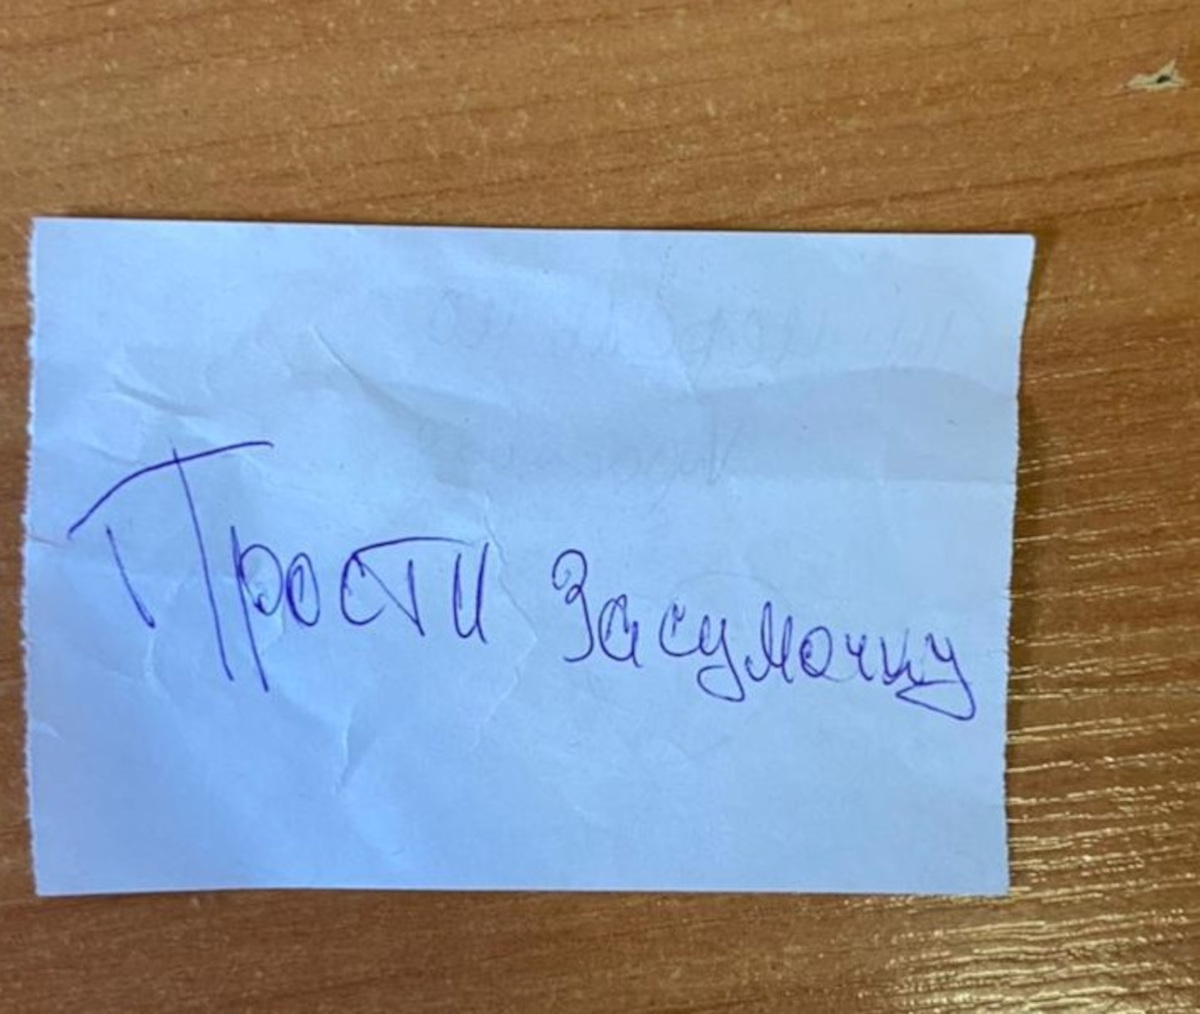 Прости засумочку